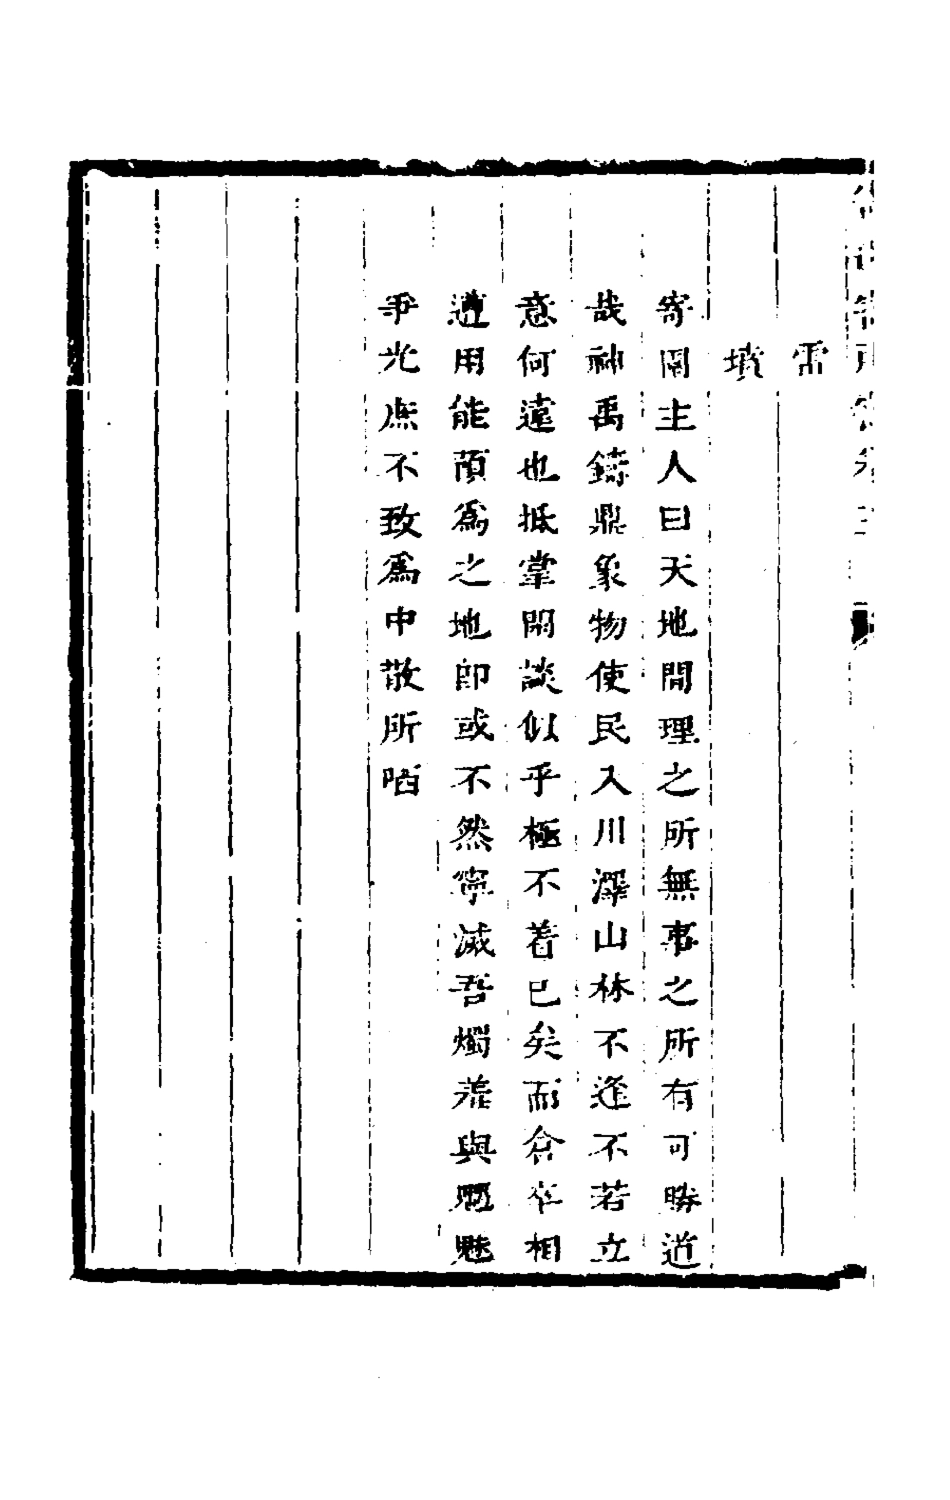 雷
墳
寄園主人曰天地間理之所無事之所有可勝道
哉神禹鑄鼎象物使民入川澤山林不逢不若立
意何遠也抵掌閒談似乎極不着已矣而倉卒相
遭用能預爲之地即或不然寧滅吾燭羞與魍魅
爭光庶不致爲中散所哂